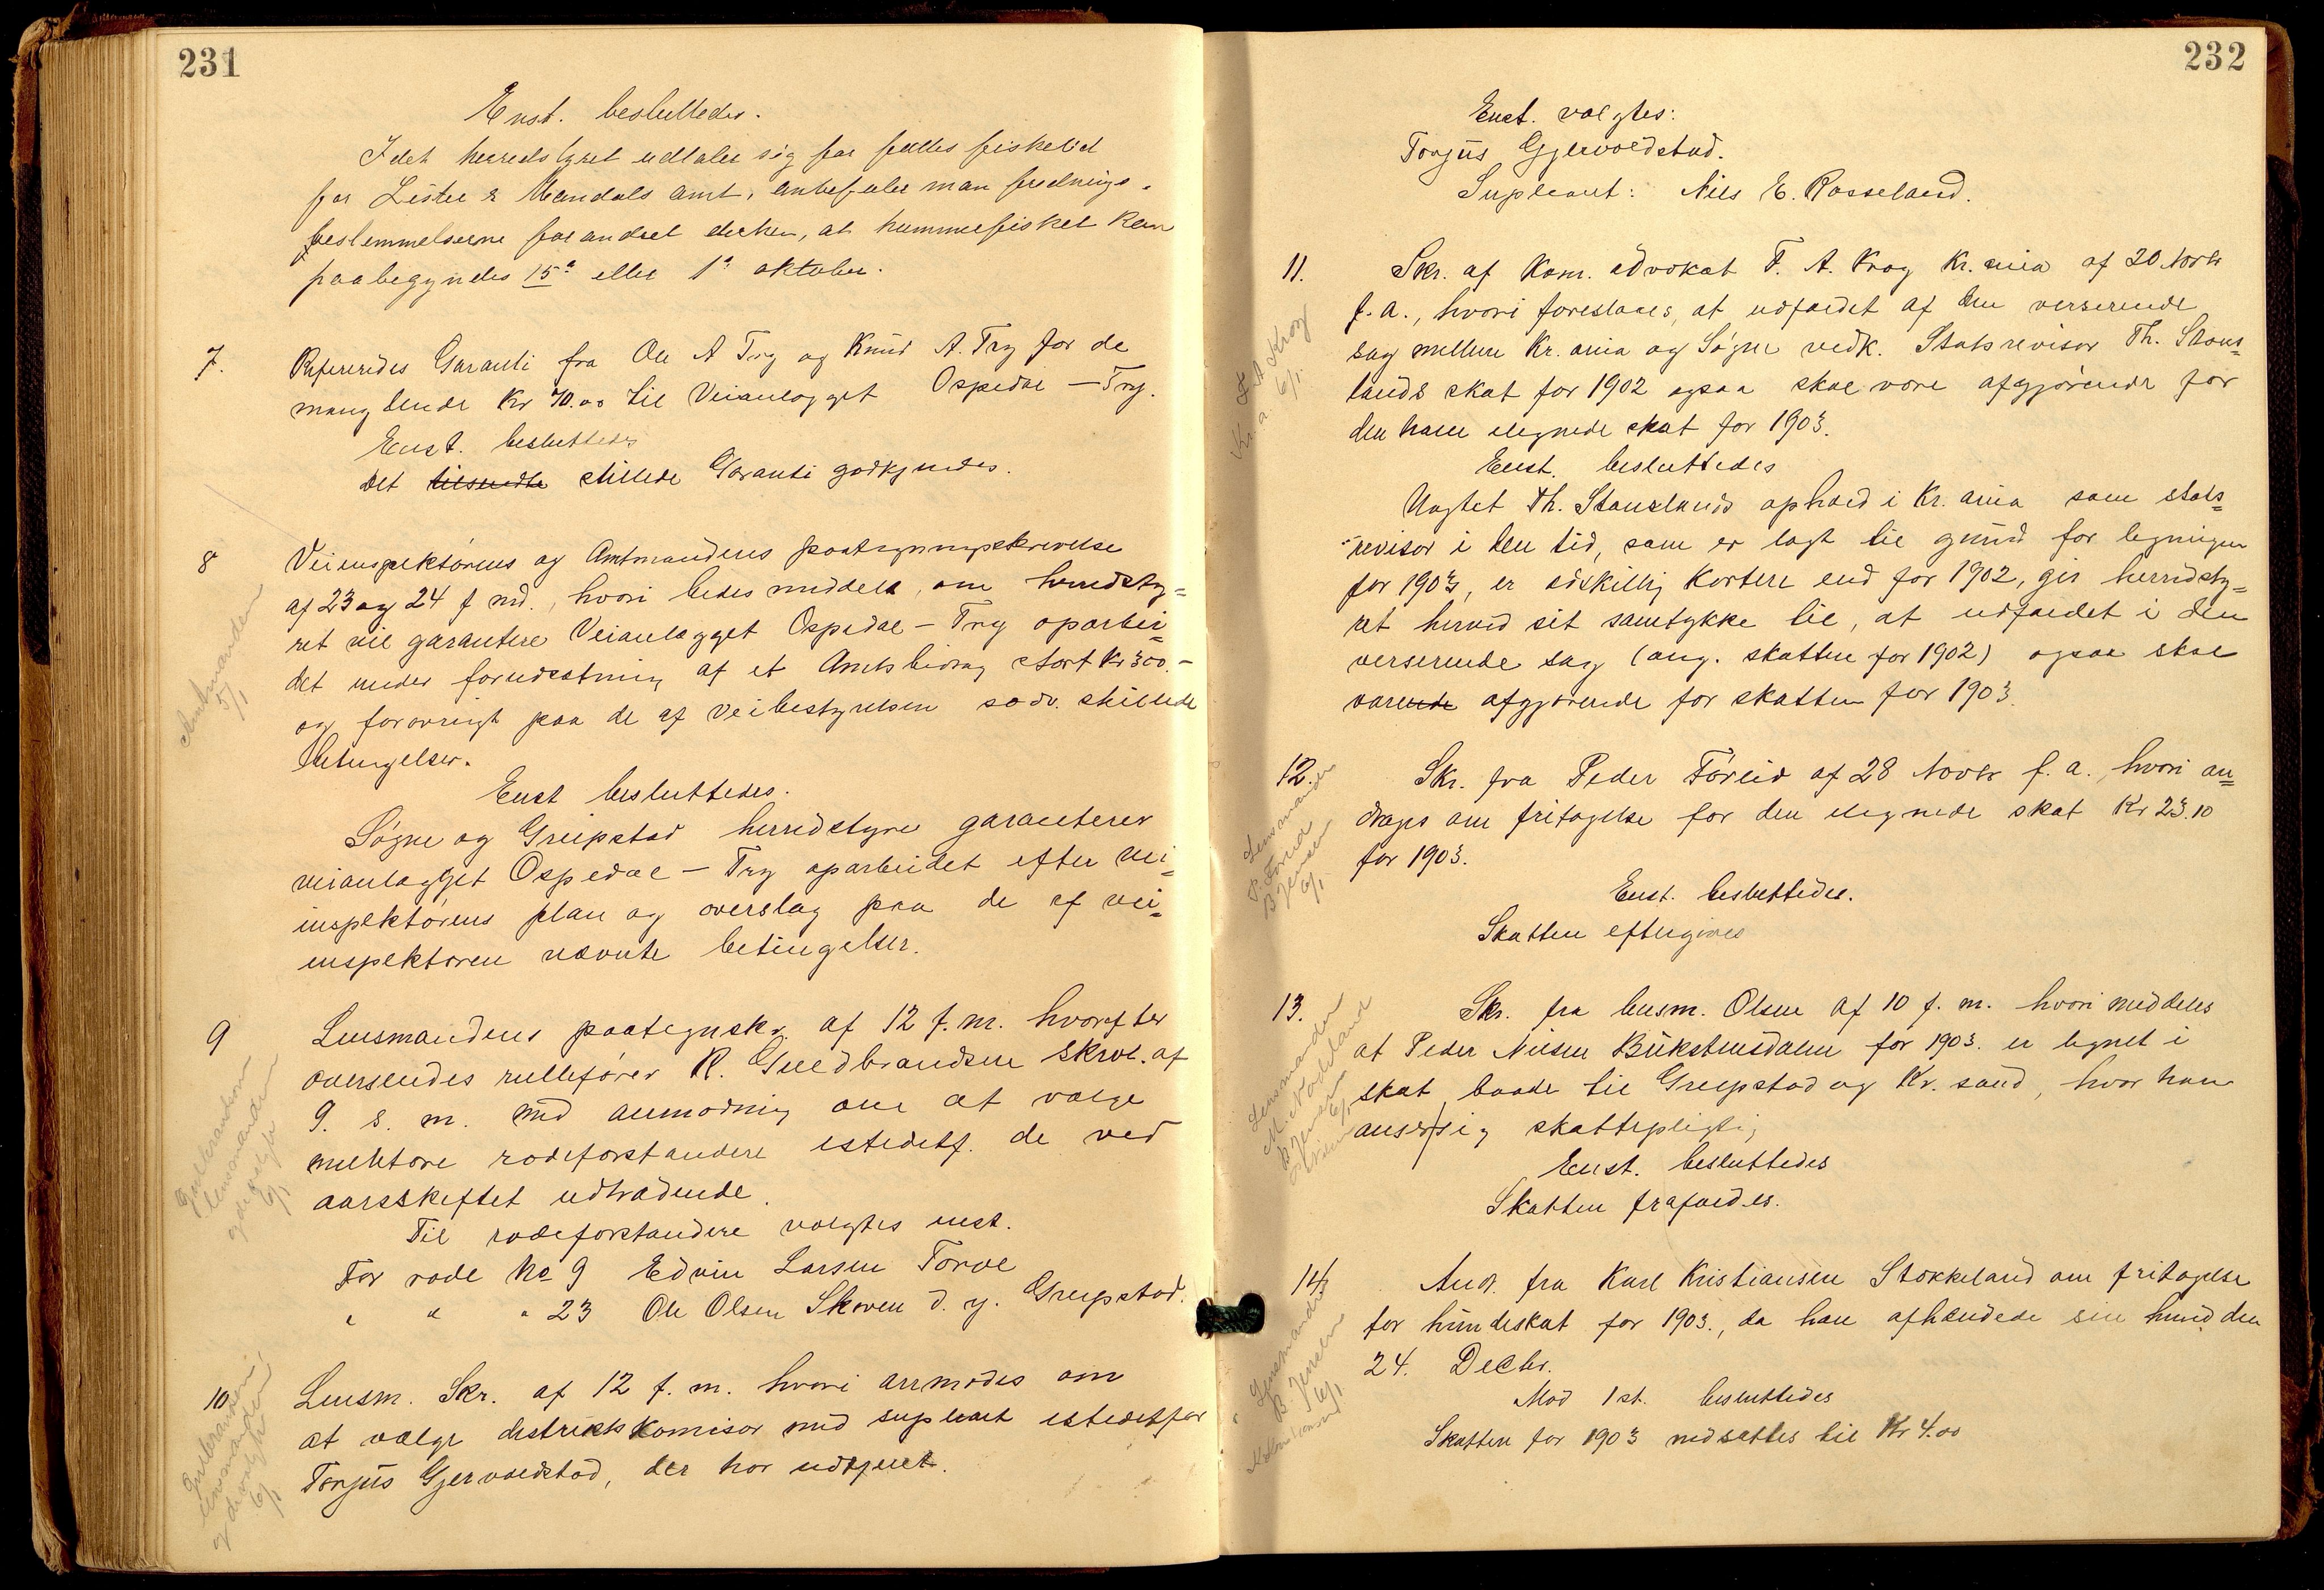 231
Enst. besluttedes.
Idet herredstyret udtaler sig for fælles fisketid
for Lister & Mandals amt, anbefaler man frednings-
bestemmelserne forandret derhen, at hummerfisket kan
paabegyndes 15de eller 1ste oktober.
7. Refereredes Garanti fra Ole A Try og Knud A. Try for de
manglende Kr 70.00 til Veianlægget Ospedal - Try.
Enst. besluttedes
Det tilsendte stillede Garanti godkjendes.
8 Veiinspektørens og Amtmandens paategningsskrivelse
af 23 og 24 f md., hvori bedes meddelt, om herredsty=
ret vil garantere Veianlægget Ospedal - Try oparbei=
det under forudsætning af et Amtsbidrag stort Kr 300.-
og forøvrigt paa de af Veibestyrelsen sædv. stillede
betingelser.
Amtmanden
5/1
Enst besluttedes.
Søgne og Greipstad herredstyre garanterer
veianlægget Ospedal - Try oparbeidet efter vei=
inspektørens plan og overslag paa de af vei=
inspektøren nævnte betingelser.
9 Lensmandens paategnskr. af 12 f. m. hvorefter
oversendes rullefører R. Guldbrandsen Skrvl. af
9. s. m. med anmodning om at vælge
rodeforstandere istedetf. de ved
aarsskiftet udtrædende.
Guldbrandsen
lensmanden
og de valgte
6/1
Til rodeforstandere valgtes enst.
For rode No 9 Edvin Larsen Torve
" " " 23 Ole Olsen Skoven d. y. Greipstad.
10 Lensm. Skr. af 12 f. m. hvori anmodes om
at vælge distriktskomisær med supleant istedetfor
Torjus Gjervoldstad, der har udtjent.
Guldbrandsen
lensmanden
og de valgte
6/1
232
Enst. valgtes:
Torjus Gjervoldstad.
Supleant: Nils E. Rosseland.
11. Skr. af Kom. advokat F. A. Krog Kr.ania af 20 Novbr
f. a., hvori foreslaaes, at udfaldet af den verserende
sag mellem Kr.ania og Søgne vedk. Statsrevisor Th. Stous=
lands skat for 1902 ogsaa skal være afgjørende for
den ham ilignede skat for 1903.
F. A. Krog
Kr.a. 6/1.
Enst. besluttedes
Uagtet Th. Stouslands ophold i Kr.ania som stats=
revisor i den tid, som er lagt til grund for ligningen
for 1903, er adskillig kortere end for 1902, gir herredsty=
ret herved sit samtykke til, at udfaldet i den
verserende sag (ang. skatten for 1902) ogsaa skal
værende afgjørende for skatten for 1903.
12. Skr. fra Peder Føreid af 28 Novbr f. a., hvori an=
drages om fritagelse for den ilignede skat Kr 23.10
for 1903.
Lensmanden
P. Føreid
B Jensen
6/1
Enst. besluttedes.
Skatten eftergives
13. Skr. fra lensm. Olsen af 10 f. m. hvori meddeles
at Peder Nilsen Bukstensdalen for 1903. er lignet i
skat, baade til Greipstad og Kr.sand, hvor han
anser sig skattepligtig
Lensmanden
B Jensen
6/1
Enst. besluttedes
Skatten frafaldes.
14. And. fra Karl Kristiansen Stokkeland om fritagelse
for hundeskat for 1903., da han afhændede sin hund den
24. Decbr.
Lensmanden
B. Jensen
6/1.
Mod 1 st. besluttedes
Skatten for 1903 nedsættes til Kr 4.00